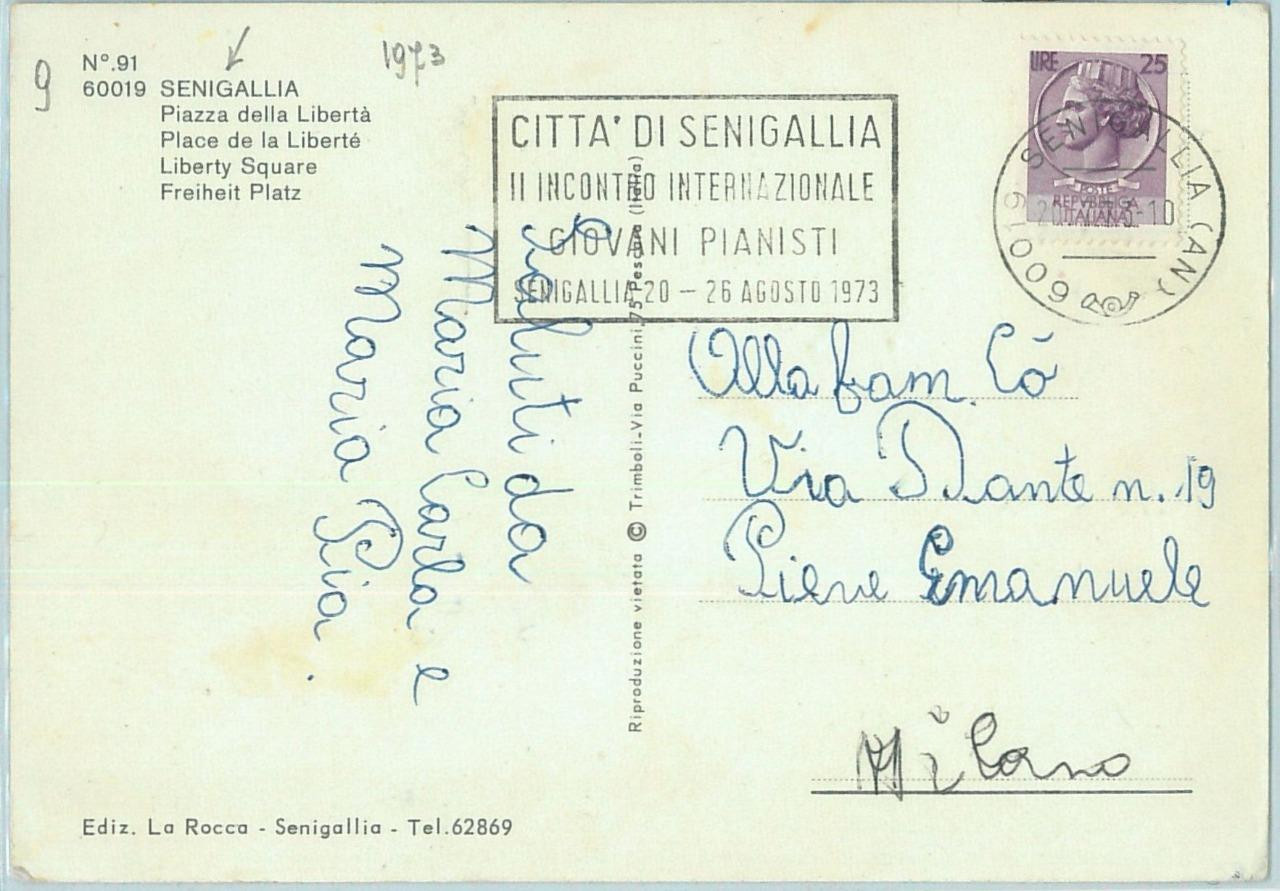 9
1973
N°.91
60019 SENIGALLIA
Piazza della Libertà
Place de la Liberté
Liberty Square
Freiheit Platz
CITTA' DI SENIGALLIA
II INCONTRO INTERNAZIONALE
GIOVANI PIANISTI
SENIGALLIA 20 - 26 AGOSTO 1973
LIRE 25
POSTE
REPVBBLICA
ITALIANA
60019 SENIGALLIA (AN)
Saluti da
Maria Carla e
Maria Pia.
Riproduzione vietata © Trimboli-Via Puccini,75 Pescara (Italia)
Alla fam. Cò
Via Dante n. 19
Pieve Emanuele
Milano
Ediz. La Rocca - Senigallia - Tel.62869